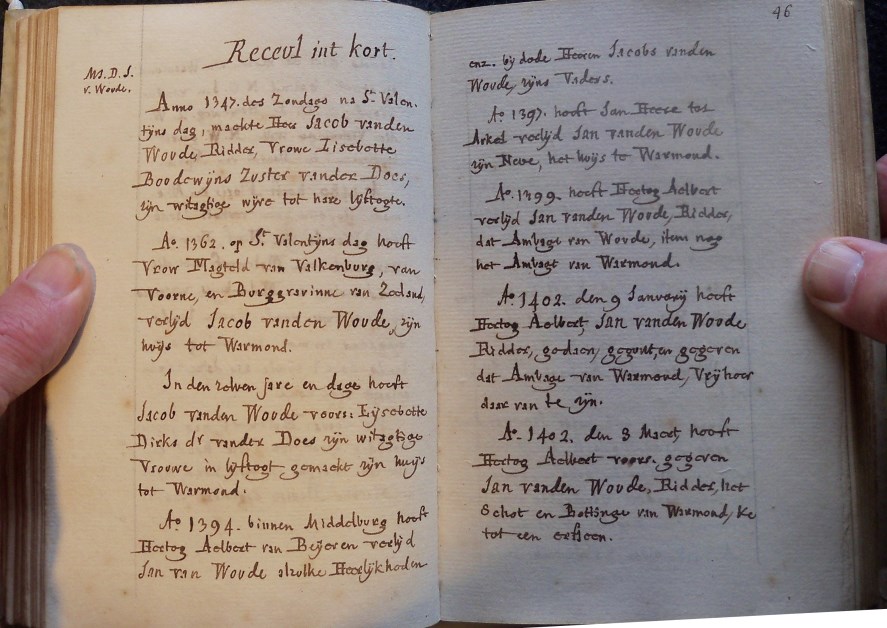 Recevl int kort.
Ms. D. J.
v. Woude.
Anno 1347. des Zondags na St. Valen-
tijns dag, maekte Heer Jacob vanden
Woude Ridder, Vrowe Lisebette
Boudewijns Zuster vander Does,
zijn witagtige wijve tot hare lijftogte.
Ao. 1362. op St. Valentijns dag heeft
Vrow Magteld van Valkenburg, van
Voorne, en Burggravinne van Zeeland,
verlijd Jacob vanden Woude, zijn
huijs tot Warmond.
In den zelven jare en dage heeft
Jacob vanden Woude voors: Lijsebette
Dirks dr. vander Does zijn witagtige
Vrouwe in lijftogt gemaekt zijn huijs
tot Warmond.
Ao 1394. binnen Middelburg heeft
Hertog Aelbert van Beijeren verlijd
Jan van Woude alzulke Heerlijkheden
46
enz. bij dode Heeren Jacobs vanden
Woude, zijns Vaders.
Ao 1397. heeft Jan Heere tot
Arkel verlijd Jan vanden Woude
zijn Neve, het huijs te Warmond.
Ao. 1399. heeft Hertog Aelbert
verlijd Jan vanden Woude, Ridder,
dat Ambagt van Woude, item nog
het Ambagt van Warmond.
Ao 1402. den 9 Januarij heeft
Hertog Aelbert, Jan vanden Woude
Ridder, gedaen, gegunt, en gegeven
dat Ambage van Warmond, Vrijheer
daar van te zijn.
Ao. 1402. den 3 Maert, heeft
Hertog Aelbert voors. gegeven
Jan vanden Woude, Ridder, het
Schot en Bottinge van Warmond,
tot een erfleen.